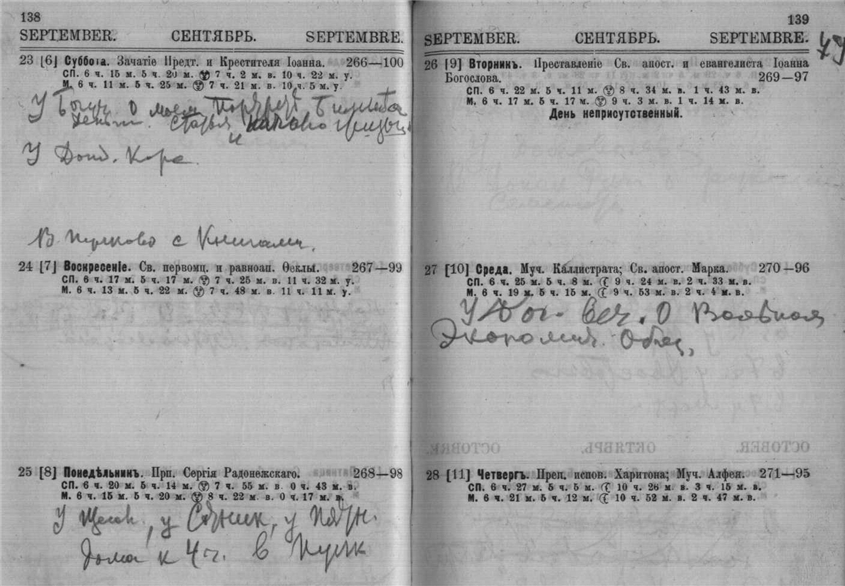 138
SEPTEMBER. СЕНТЯБРЬ. SEPTEMBRE.
23 [6] Суббота. Зачатіе Предт. и Крестителя Іоанна. 266—100
СП. 6 ч. 15 м. 5 ч. 20 м. 7 ч. 2 м. в. 10 ч. 22 м. у.
М. 6 ч. 11 м. 5 ч. 25 м. 7 ч. 21 м. в. 10 ч. 5 м. у.
У О моем
У Конд. Каре
В Пулково с Книгами.
24 [7] Воскресеніе. Св. первомц. и равноап. Ѳеклы. 267—99
СП. 6 ч. 17 м. 5 ч. 17 м. 7 ч. 25 м. в. 11 ч. 32 м. у.
М. 6 ч. 13 м. 5 ч. 22 м. 7 ч. 48 м. в. 11 ч. 11 м. у.
25 [8] Понедѣльникъ. Прп. Сергія Радонежскаго. 268—98
СП. 6 ч. 20 м. 5 ч. 14 м. 7 ч. 55 м. в. 0 ч. 43 м. в.
М. 6 ч. 15 м. 5 ч. 20 м. 8 ч. 22 м. в. 0 ч. 17 м. в.
У , у , у
Дома к 4 ч. в Пулк
139
SEPTEMBER. СЕНТЯБРЬ. SEPTEMBRE.
26 [9] Вторникъ. Преставленіе Св. апост. и евангелиста Іоанна
Богослова. 269—97
СП. 6 ч. 22 м. 5 ч. 11 м. 8 ч. 34 м. в. 1 ч. 43 м. в.
М. 6 ч. 17 м. 5 ч. 17 м. 9 ч. 3 м. в. 1 ч. 14 м. в.
День неприсутственный.
27 [10] Среда. Муч. Каллистрата; Св. апост. Марка. 270—96
СП. 6 ч. 25 м. 5 ч. 8 м. 9 ч. 24 м. в. 2 ч. 33 м. в.
М. 6 ч. 19 м. 5 ч. 15 м. 9 ч. 53 м. в. 2 ч. 4 м. в.
У веч. О
Экономич. Общ.
28 [11] Четвергъ. Преп. испов. Харитона; Муч. Алфея. 271—95
СП. 6 ч. 27 м. 5 ч. 5 м. 10 ч. 26 м. в. 3 ч. 15 м. в.
М. 6 ч. 21 м. 5 ч. 12 м. 10 ч. 52 м. в. 2 ч. 47 м. в.